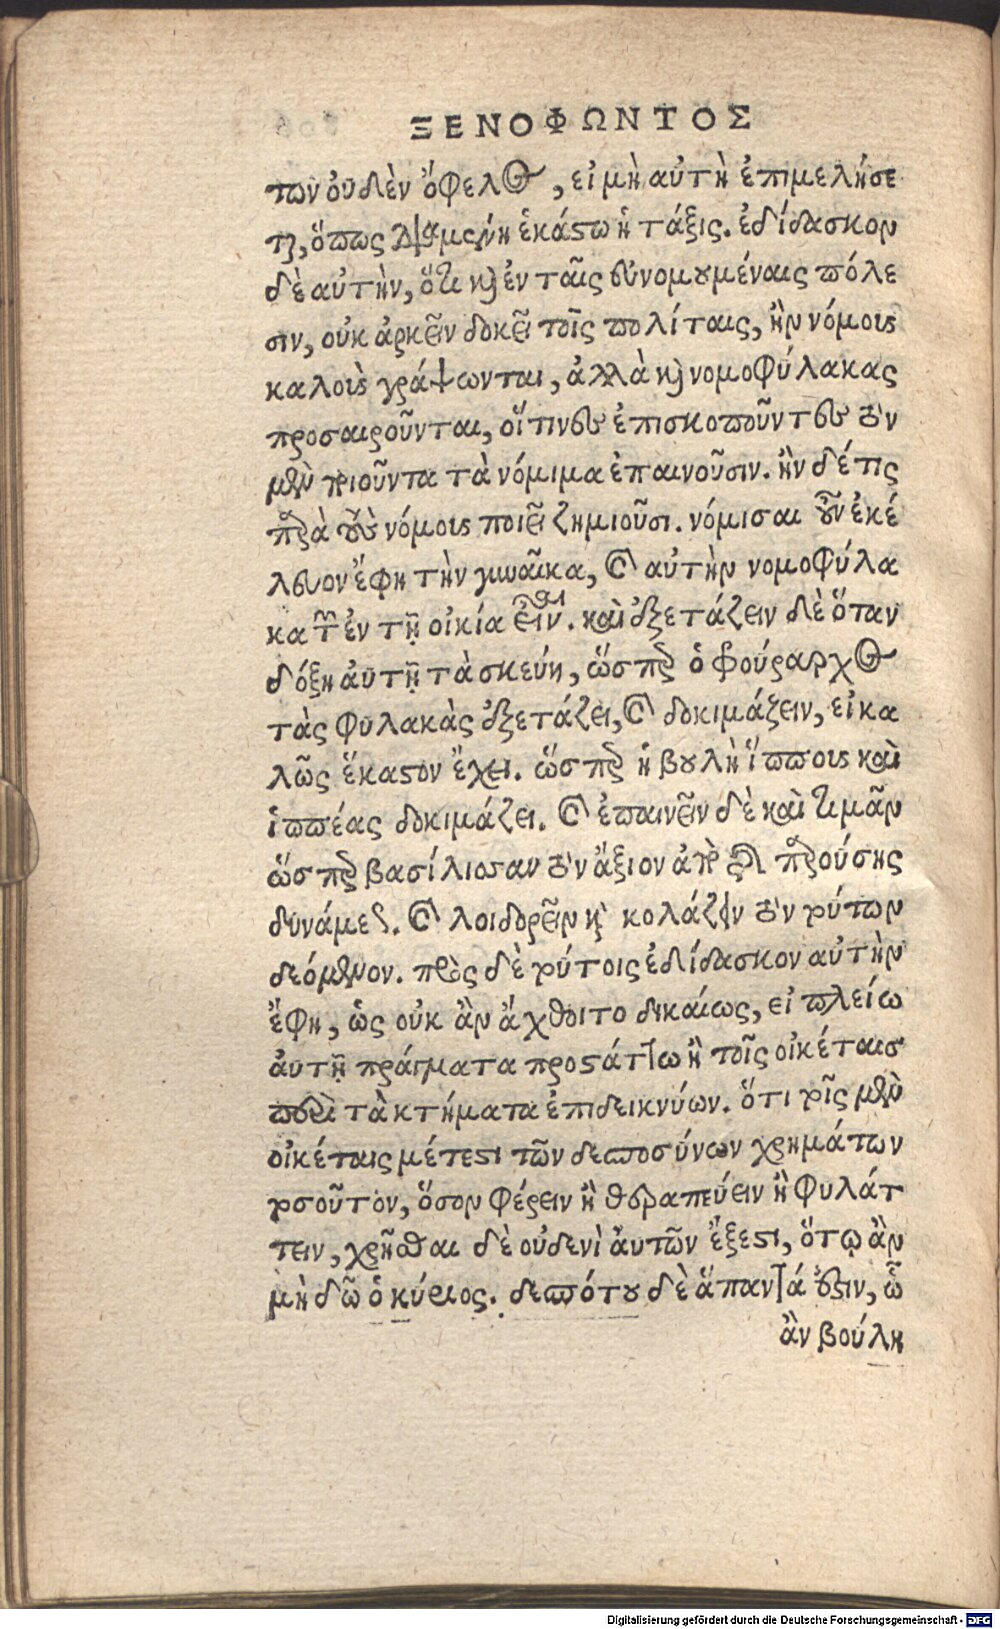 ΞΕΝΟΦΩΝΤΟΣ
των οὐδὲν ὄφελος, εἰ μὴ αὐτὴ ἐπιμελήσε
ται, ὅπως διαμένῃ ἑκάστῳ ἡ τάξις. ἐδίδασκον
δὲ αὐτὴν, ὅτι καὶ ἐν ταῖς εὐνομουμέναις πόλε
σιν, οὐκ ἀρκεῖν δοκεῖ τοῖς πολίταις, ἢν νόμους
καλοὺς γράψωνται, ἀλλὰ καὶ νομοφύλακας
προσαιροῦνται, οἵτινες ἐπισκοποῦντες τὸν
μὲν ποιοῦντα τὰ νόμιμα ἐπαινοῦσιν. ἢν δέ τις
παρὰ τοὺς νόμους ποιεῖ ζημιοῦσι. νόμισαι οὖν ἐκέ
λευον ἔφη τὴν γυναῖκα, καὶ αὐτὴν νομοφύλα
κα τῶν ἐν τῇ οἰκίᾳ εἶναι. καὶ ἐξετάζειν δὲ ὅταν
δόξῃ αὐτῇ τὰ σκεύη, ὥσπερ ὁ φρούραρχος
τὰς φυλακὰς ἐξετάζει, καὶ δοκιμάζειν, εἰ κα
λῶς ἕκαστον ἔχει. ὥσπερ ἡ βουλὴ ἵππους καὶ
ἱππέας δοκιμάζει. καὶ ἐπαινεῖν δὲ καὶ τιμᾶν
ὥσπερ βασίλισσαν τὸν ἄξιον ἀπὸ τῆς παρούσης
δυνάμεως. καὶ λοιδορεῖν καὶ κολάζειν τὸν τούτων
δεόμενον. πρὸς δὲ τούτοις ἐδίδασκον αὐτὴν
ἔφη, ὡς οὐκ ἂν ἄχθοιτο δικαίως, εἰ πλείω
αὐτῇ πράγματα προστάττω ἢ τοῖς οἰκέταις
περὶ τὰ κτήματα ἐπιδεικνύων. ὅτι τοῖς μὲν
οἰκέταις μέτεστι τῶν δεσποσύνων χρημάτων
τοσοῦτον, ὅσον φέρειν ἢ θεραπεύειν ἢ φυλάτ
τειν, χρῆσθαι δὲ οὐδενὶ αὐτῶν ἔξεστι, ὅτῳ ἂν
μὴ δῷ ὁ κύριος. δεσπότου δὲ ἅπαντά ἐστιν, ᾧ
ἂν βούλη
Digitalisierung gefördert durch die Deutsche Forschungsgemeinschaft - DFG